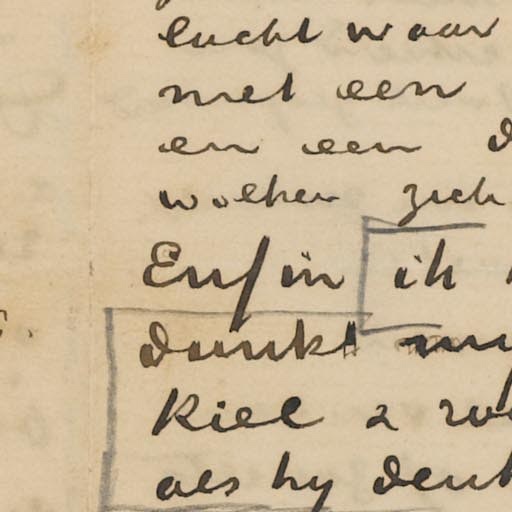 lucht waar
met een
en een
wolken zich
Enfin ik
dunkt
Kiel
als hy denk